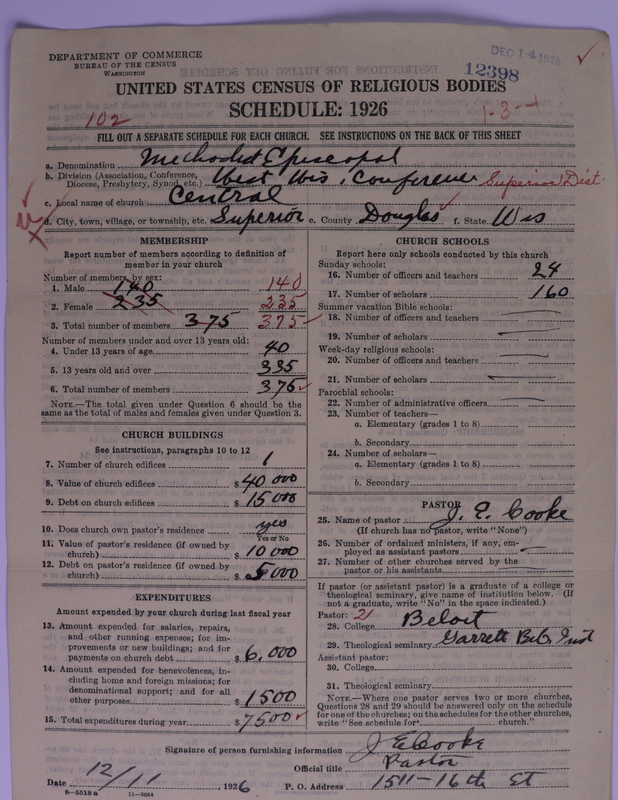 DEPARTMENT OF COMMERCE
BUREAU OF THE CENSUS
WASHINGTON
DEC 14 1926
12398
UNITED STATES CENSUS OF RELIGIOUS BODIES
SCHEDULE: 1926
102
1-3-4
FILL OUT A SEPARATE SCHEDULE FOR EACH CHURCH. SEE INSTRUCTIONS ON THE BACK OF THIS SHEET
a. Denomination Methodist Episcopal
b. Division (Association, Conference, Diocese, Presbytery, Synod, etc.) West Wis. Conference Superior Dist.
c. Local name of church Central
d. City, town, village, or township, etc. Superior e. County Douglas f. State Wis
MEMBERSHIP
Report number of members according to definition of
member in your church
Number of members by sex:
1. Male 140 140
2. Female 235 235
3. Total number of members 375 375
Number of members under and over 13 years old:
4. Under 13 years of age 40
5. 13 years old and over 335
6. Total number of members 376
NOTE.—The total given under Question 6 should be the
same as the total of males and females given under Question 3.
CHURCH BUILDINGS
See instructions, paragraphs 10 to 12
7. Number of church edifices 1
8. Value of church edifices $ 40 000
9. Debt on church edifices $ 15 000
10. Does church own pastor's residence yes
Yes or No
11. Value of pastor's residence (if owned by
church) $ 10 000
12. Debt on pastor's residence (if owned by
church) $ 5 000
EXPENDITURES
Amount expended by your church during last fiscal year
13. Amount expended for salaries, repairs,
and other running expenses; for im-
provements or new buildings; and for
payments on church debt $ 6.000
14. Amount expended for benevolences, in-
cluding home and foreign missions; for
denominational support; and for all
other purposes $ 1500
15. Total expenditures during year $ 7500
CHURCH SCHOOLS
Report here only schools conducted by this church
Sunday schools:
16. Number of officers and teachers 24
17. Number of scholars 160
Summer vacation Bible schools:
18. Number of officers and teachers
19. Number of scholars
Week-day religious schools:
20. Number of officers and teachers
21. Number of scholars
Parochial schools:
22. Number of administrative officers
23. Number of teachers—
a. Elementary (grades 1 to 8)
b. Secondary
24. Number of scholars—
a. Elementary (grades 1 to 8)
b. Secondary
PASTOR
25. Name of pastor J. E. Cooke
(If church has no pastor, write "None")
26. Number of ordained ministers, if any, em-
ployed as assistant pastors
27. Number of other churches served by the
pastor or his assistants
If pastor (or assistant pastor) is a graduate of a college or
theological seminary, give name of institution below. (If
not a graduate, write "No" in the space indicated.)
Pastor: 21
28. College Beloit
29. Theological seminary Garrett Bib. Inst
Assistant pastor:
30. College
31. Theological seminary
NOTE.—Where one pastor serves two or more churches,
Questions 28 and 29 should be answered only on the schedule
for one of the churches; on the schedules for the other churches,
write "See schedule for church."
Signature of person furnishing information J E Cooke
Official title Pastor
Date 12/11, 1926 P. O. Address 1511-16th St
8-5518 a 11-9084